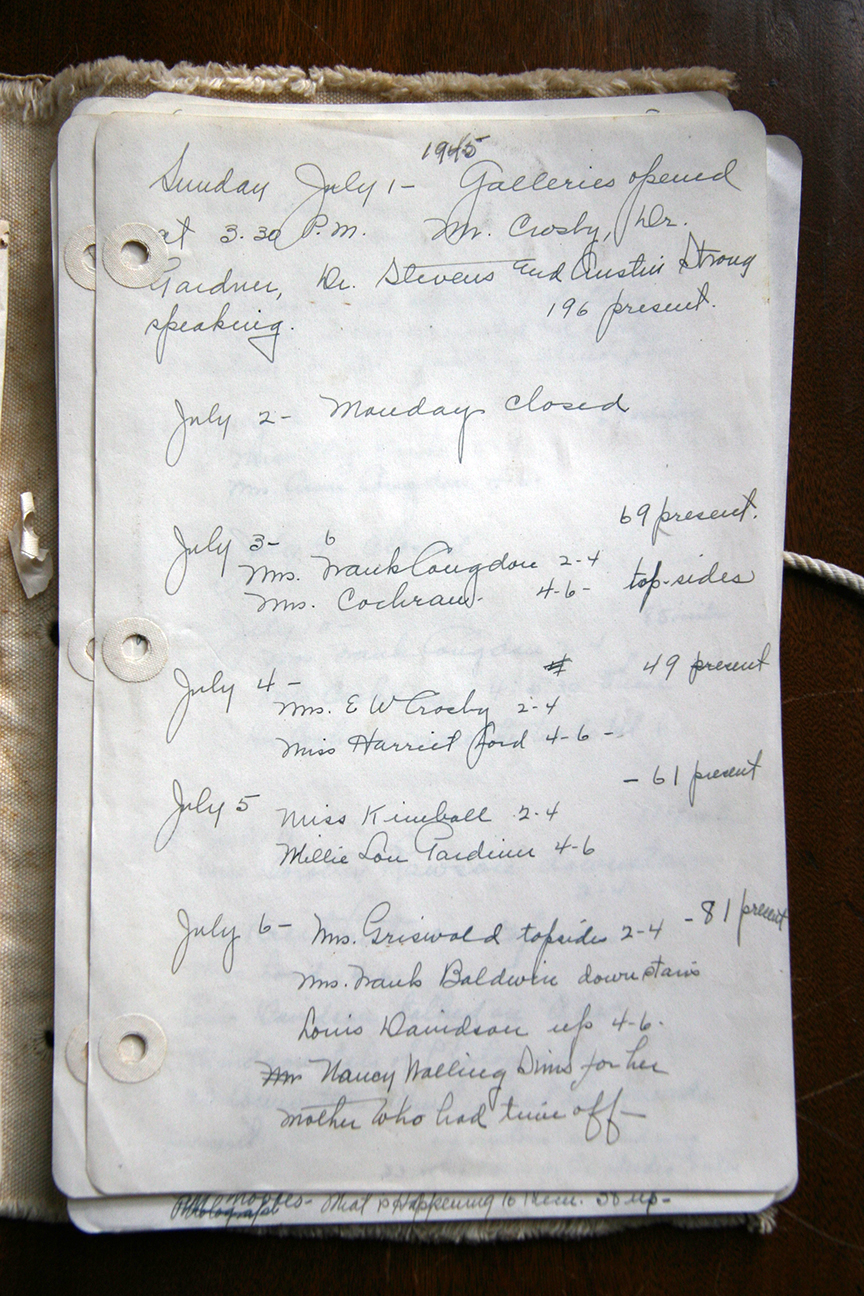 1945
Sunday July 1 - Galleries opened
at 3.30 P.M. Mr. Crosby, Dr.
Gardner, Dr. Stevens and Austin Strong
speaking. 196 present.
July 2 - Monday closed
69 present.
July 3 - 6
Mrs. Frank Congdon 2-4
Mrs. Cochran. 4-6 - top-sides
July 4 - 49 present
Mrs. E W Crosby 2-4
Miss Harriet Ford 4-6 -
- 61 present
July 5 Miss Kimball 2-4
Millie Lou Gardner 4-6
July 6 - Mrs. Griswold topsides 2-4 - 81 present
Mrs. Frank Baldwin downstairs
Louis Davidson up 4-6.
Nancy Walling Sims for her
mother who had time off -
Movies - What is Happening to Them. 38 up -